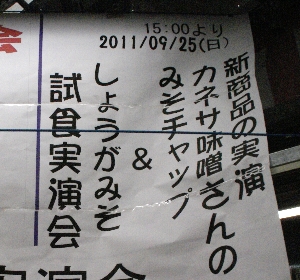 15:00より
2011/09/25(日)
新商品の実演
カネサ味噌さんの
みそチャップ
&
しょうがみそ
試食実演会